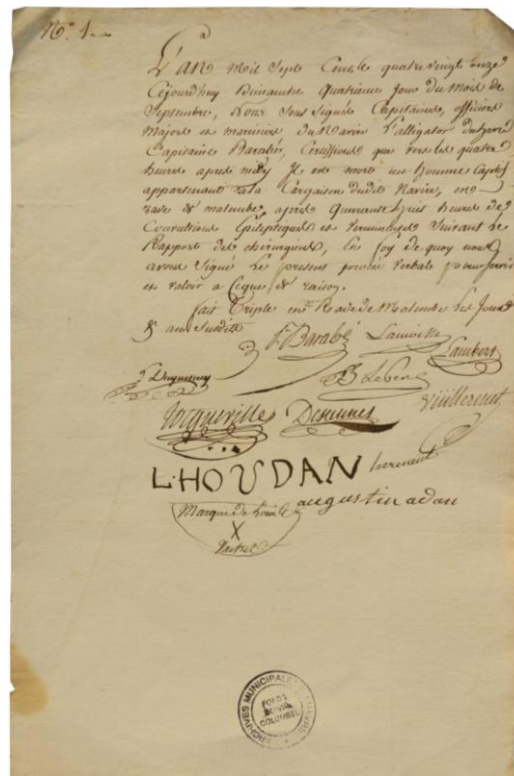 N.º 1
L'an Mil Sept Cent quatrevingt onze
Cejourdhuy Dimanche quatrieme jour du Mois de
Septembre, Nous Sous Signés Capitaine, officiers
Majors et mariniers du Navire l'alligator du havre
Capitaine Barabé, Certiffions que vers les quatre
heures apres midy Il est mort un homme Captif
appartenant a la Cargaison dudit Navire, en
rade de malembe, apres Quarante huit heures de
Convultions Epileptiques et vermineuses Suivant le
Rapport des chirurgiens, En foy de quoy nous
avons Signé Le present procés verbal pour servir
et valoir a Ceque de raison.
fait Triple en Rade de Malembe les Jour
& an Susdits
F. Barabé
Lambert
Duquesney
Tocqueville
L. HOUDAN
augustin adan
Marque de
X
ARCHIVES MUNICIPALES
FONDS
COLOMBEL